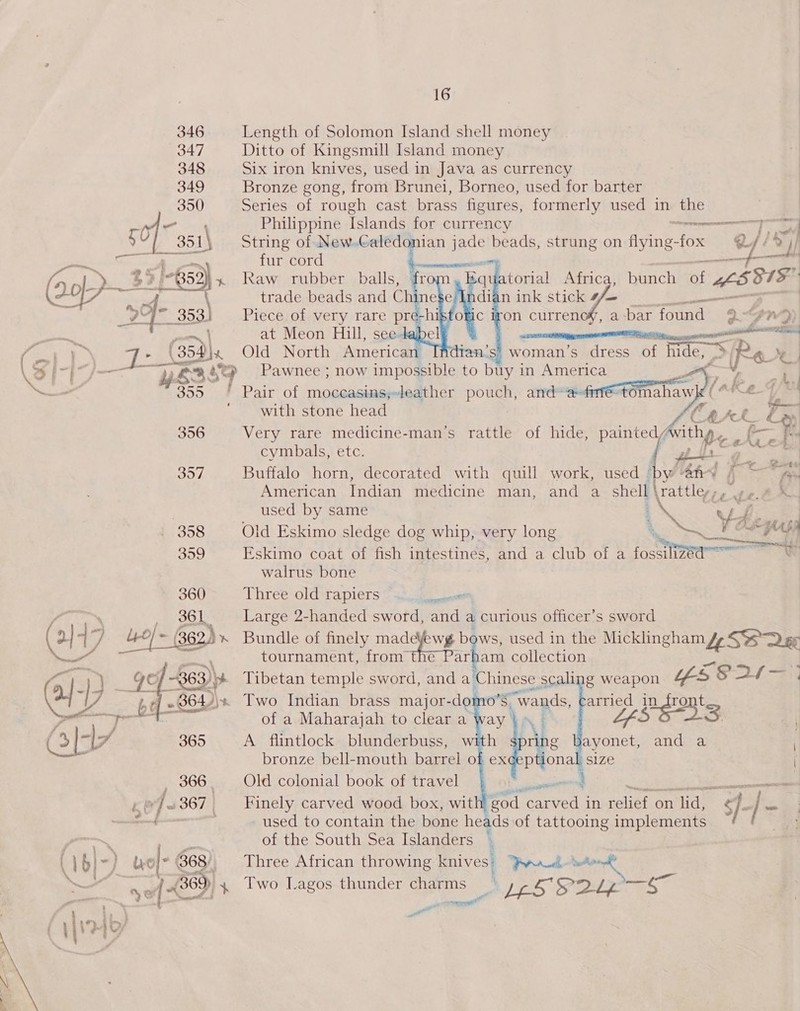 16
346 Length of Solomon Island shell money
347 Ditto of Kingsmill Island money
348 Six iron knives, used in Java as currency
349 Bronze gong, from Brunei, Borneo, used for barter
350 Series of rough cast brass figures, formerly used in the
Philippine Islands for currency
50/- 351 String of New Caledonian jade beads, strung on flying-fox
fur cord
352 Raw rubber balls, from Equatorial Africa, bunch of
trade beads and Chinese/Indian ink stick
353 Piece of very rare pre-historic iron currency, a bar found
at Meon Hill, see label
354 Old North American Indian's woman's dress of hide,
Pawnee; now impossible to buy in America
355 Pair of moccasins, leather pouch, and a fine tomahawk
with stone head
356 Very rare medicine-man's rattle of hide, painted, with
cymbals, etc.
357 Buffalo horn, decorated with quill work, used by an
American Indian medicine man, and a shell rattle,
used by same
358 Old Eskimo sledge dog whip, very long
359 Eskimo coat of fish intestines, and a club of a fossilized
walrus bone
360 Three old rapiers
361 Large 2-handed sword, and a curious officer's sword
40/- 362 Bundle of finely made yew bows, used in the Micklingham
tournament, from the Parham collection
363 Tibetan temple sword, and a Chinese scaling weapon
364 Two Indian brass major-domo's wands, carried in front
of a Maharajah to clear a way
365 A flintlock blunderbuss, with spring bayonet, and a
bronze bell-mouth barrel of exceptional size
366 Old colonial book of travel
367 Finely carved wood box, with god carved in relief on lid,
used to contain the bone heads of tattooing implements
of the South Sea Islanders
368 Three African throwing knives
369 Two Lagos thunder charms